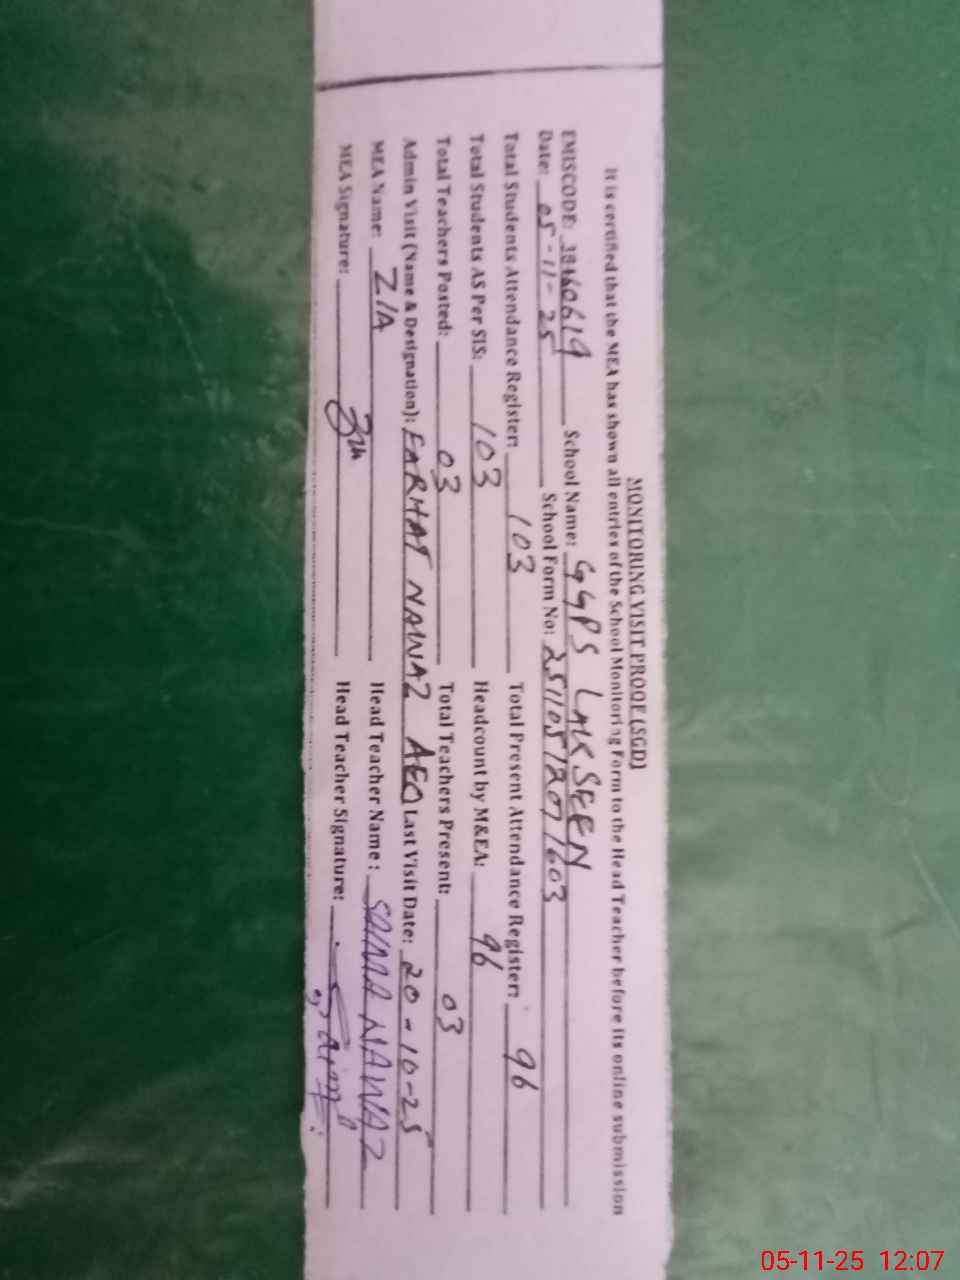 MONITORING VISIT PROOF (SGD)
It is certified that the MEA has shown all entries of the School Monitoring Form to the Head Teacher before its online submission
EMISCODE: 38460619 School Name: GGPS LAK SEEN
Date: 05-11-25 School Form No: 25110512071603
Total Students Attendance Register: 103 Total Present Attendance Register: 96
Total Students AS Per SIS: 103 Headcount by M&EA: 96
Total Teachers Posted: 03 Total Teachers Present: 03
Admin Visit (Name & Designation): FARHAT NAWAZ AEO Last Visit Date: 20-10-25
MEA Name: ZIA Head Teacher Name: SAIMA NAWAZ
MEA Signature: Head Teacher Signature:
05-11-25 12:07